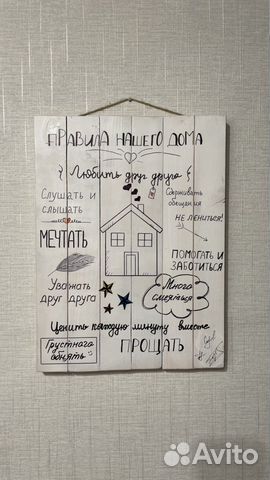 ПРАВИЛА НАШЕГО ДОМА
{ Любить друг друга {
Слушать и
слышать
Сдерживать
обещания
НЕ ЛЕНИТЬСЯ!
МЕЧТАТЬ
ПОМОГАТЬ И
ЗАБОТИТЬСЯ
Уважать
друг друга
Много
смеяться
Ценить каждую минуту вместе
Грустного
обнять
ПРОЩАТЬ
Avito